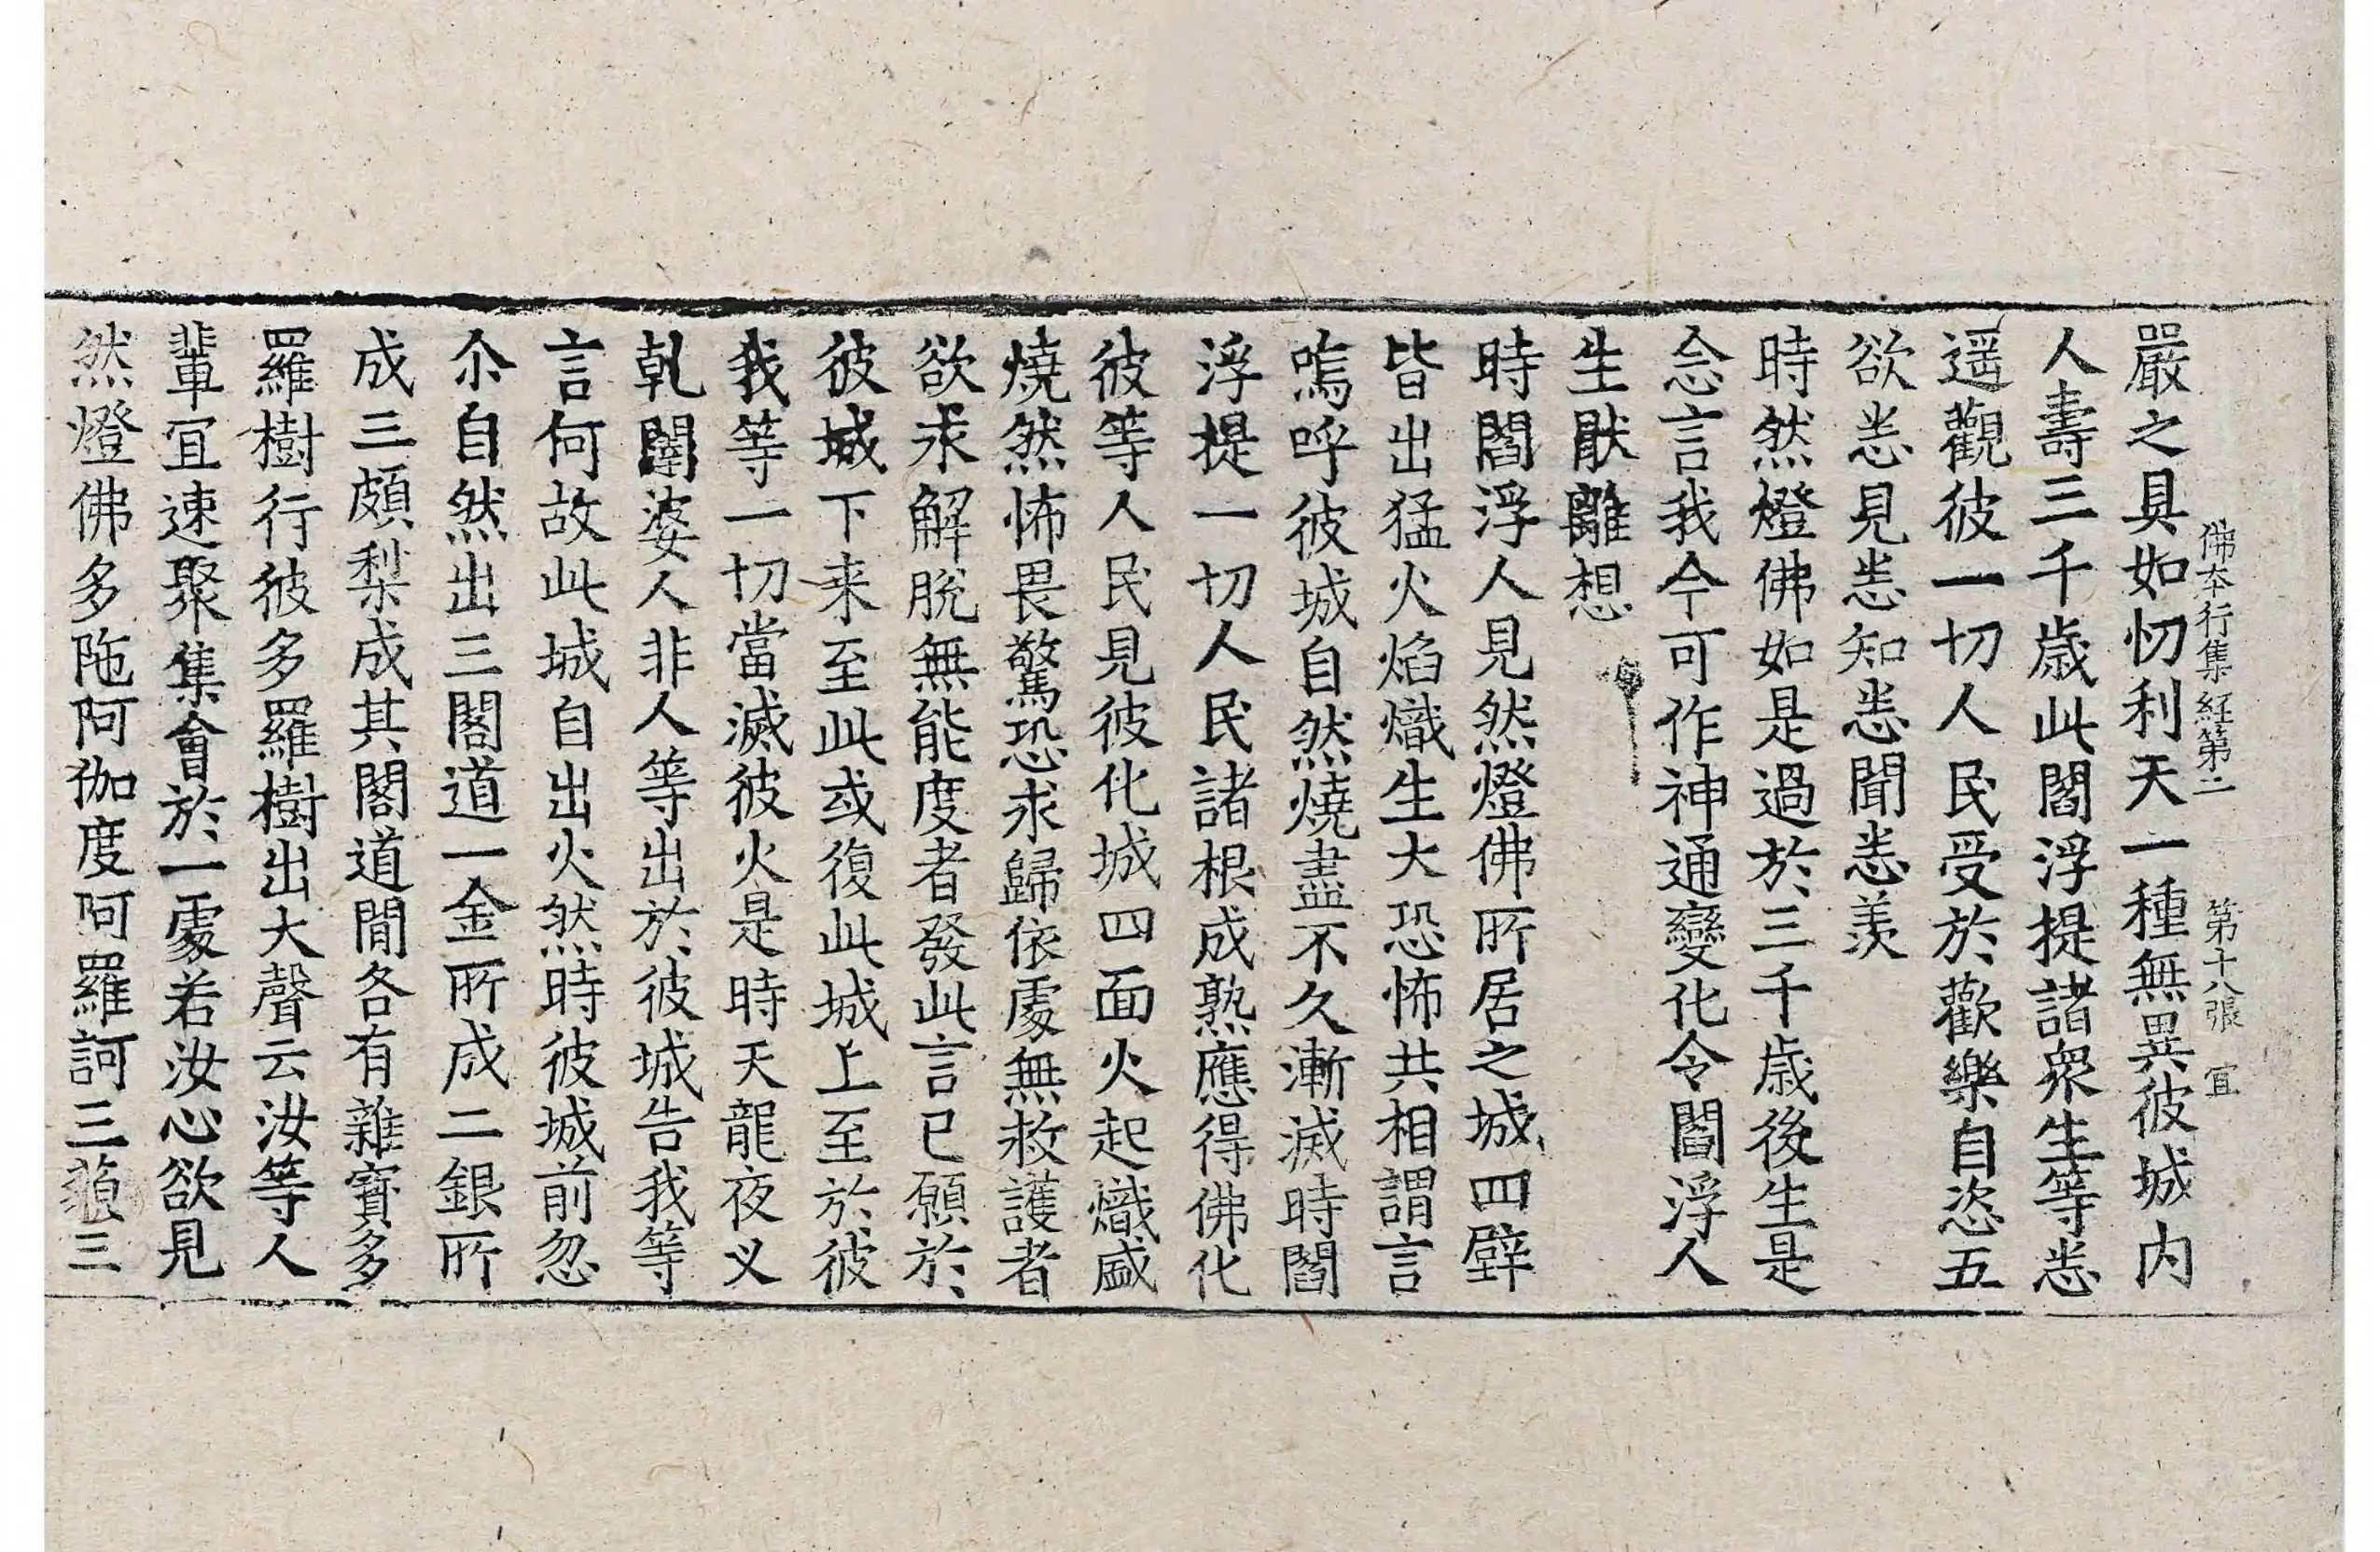 佛本行集経第二　第十八張　宜
嚴之具如忉利天一種無異彼城内
人壽三千歳此閻浮提諸衆生等悉
遥觀彼一切人民受於歡樂自恣五
欲悉見悉知悉聞悉羡
時然燈佛如是過於三千歳後生是
念言我今可作神通變化令閻浮人
生猒離想
時閻浮人見然燈佛所居之城四壁
皆出猛火焰熾生大恐怖共相謂言
嗚呼彼城自然燒盡不久漸滅時閻
浮提一切人民諸根成熟應得佛化
彼等人民見彼化城四面火起熾盛
燒然怖畏驚恐求歸依處無救護者
欲求解脫無能度者發此言已願於
彼城下来至此或復此城上至於彼
我等一切當滅彼火是時天龍夜叉
乹闥婆人非人等出於彼城告我等
言何故此城自出火然時彼城前忽
尒自然出三閣道一金所成二銀所
成三頗梨成其閣道間各有雜寳多
羅樹行彼多羅樹出大聲云汝等人
輩宜速聚集會於一處若汝心欲見
然燈佛多陁阿伽度阿羅訶三藐三